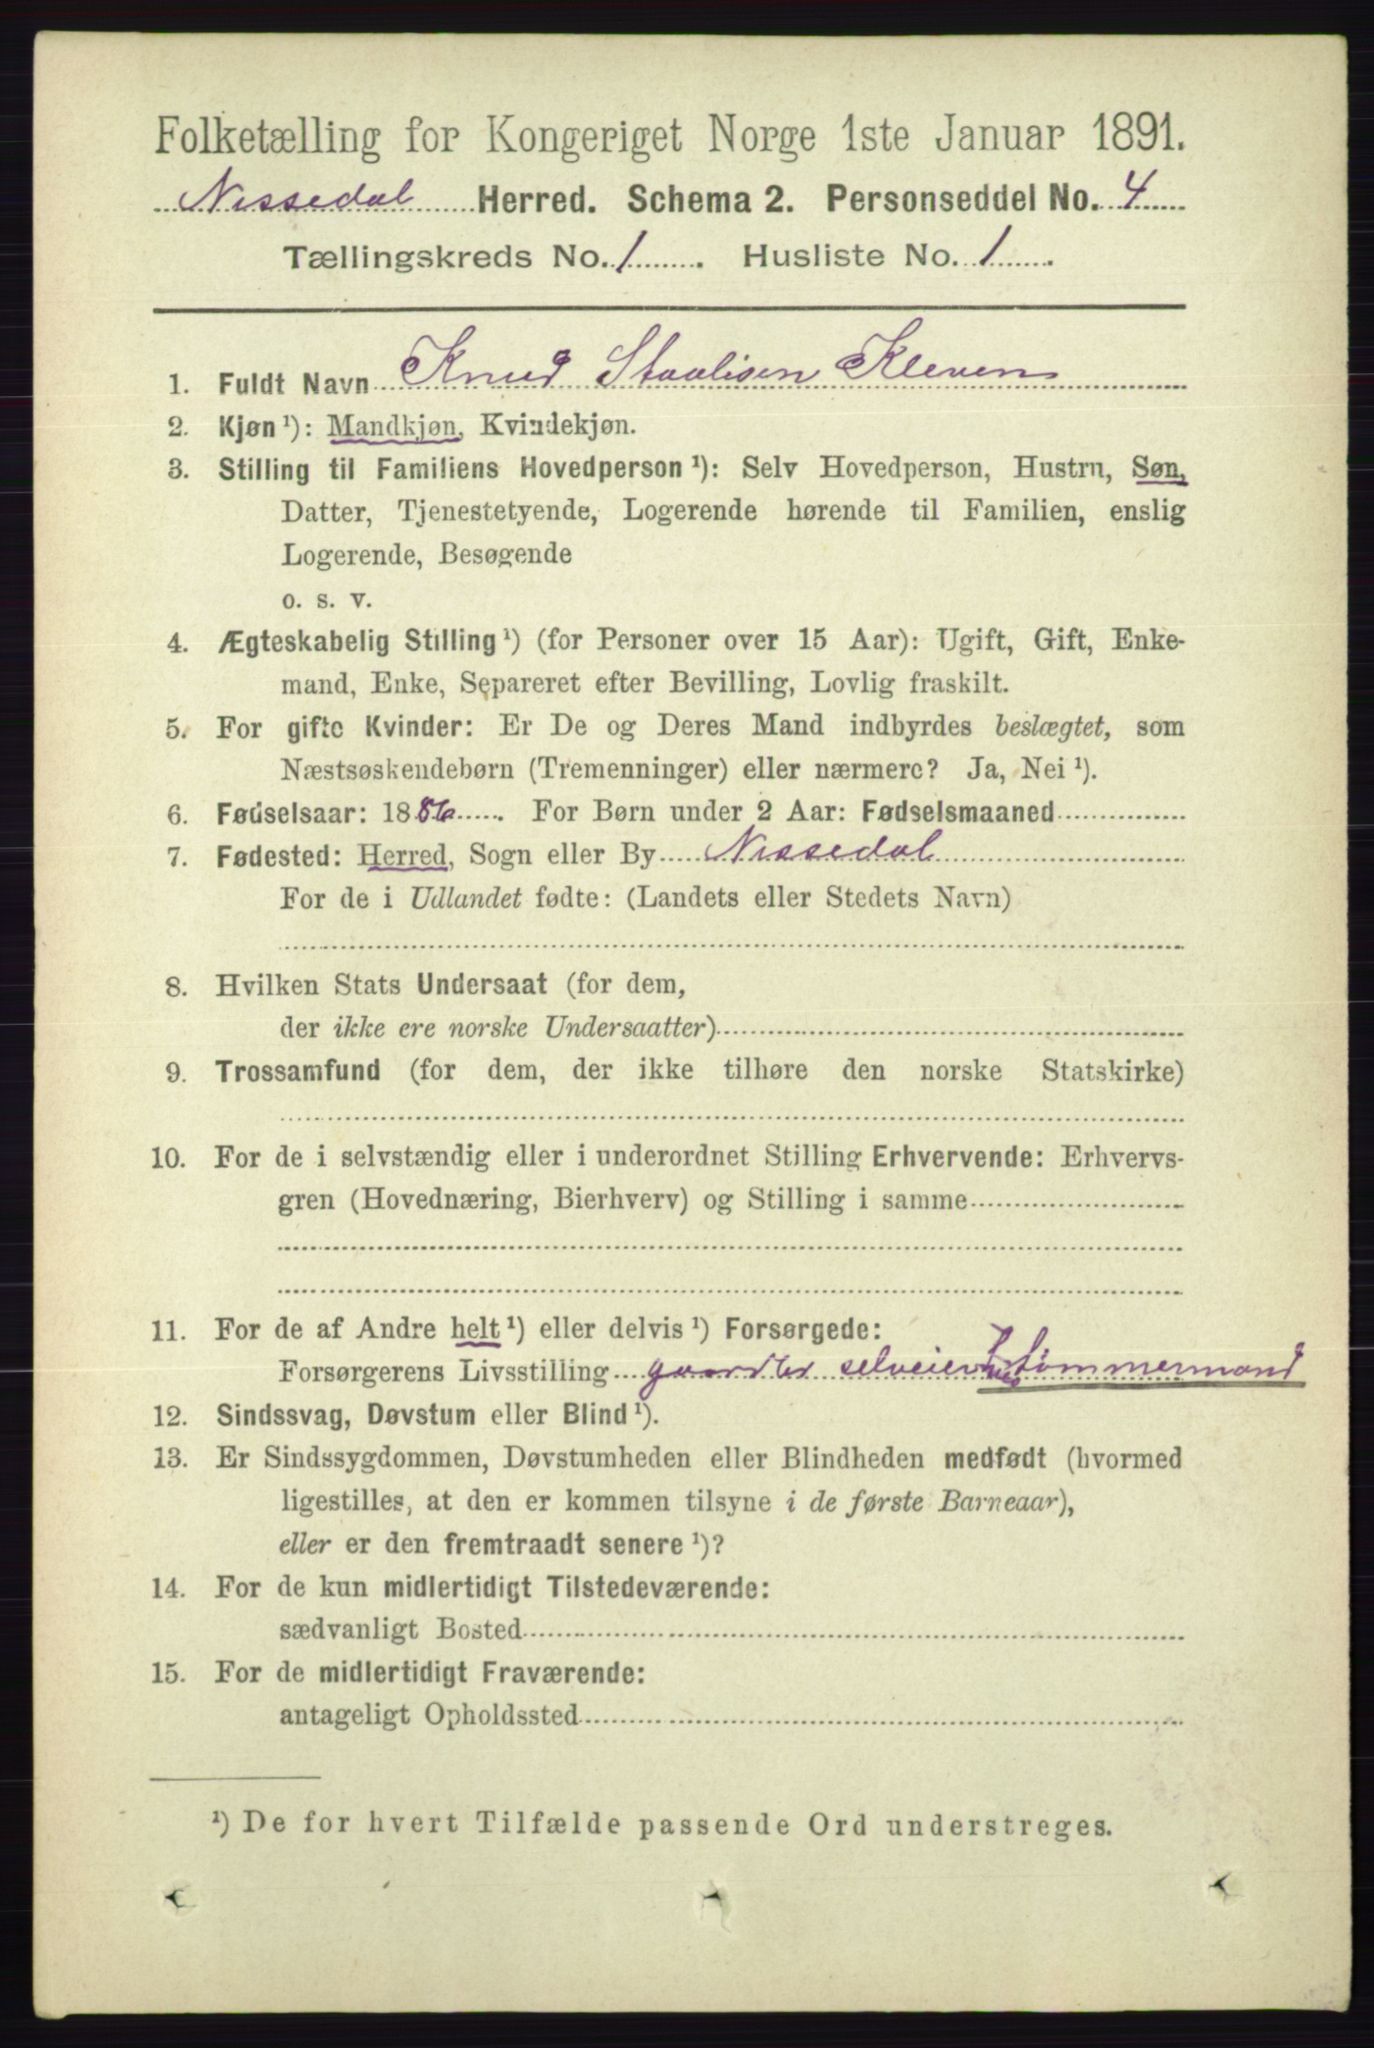 Folketælling for Kongeriget Norge 1ste Januar 1891.
Nissedal Herred. Schema 2. Personseddel No. 4
Tællingskreds No. 1. Husliste No. 1.
1. Fuldt Navn Knud Staalisen Kleven
2. Kjøn ¹): Mandkjøn, Kvindekjøn.
3. Stilling til Familiens Hovedperson ¹): Selv Hovedperson, Hustru, Søn,
Datter, Tjenestetyende, Logerende hørende til Familien, enslig
Logerende, Besøgende
o. s. v.
4. Ægteskabelig Stilling ¹) (for Personer over 15 Aar): Ugift, Gift, Enke-
mand, Enke, Separeret efter Bevilling, Lovlig fraskilt.
5. For gifte Kvinder: Er De og Deres Mand indbyrdes beslægtet, som
Næstsøskendebørn (Tremenninger) eller nærmere? Ja, Nei ¹).
6. Fødselsaar: 1886. For Børn under 2 Aar: Fødselsmaaned
7. Fødested: Herred, Sogn eller By Nissedal
For de i Udlandet fødte: (Landets eller Stedets Navn)
8. Hvilken Stats Undersaat (for dem,
der ikke ere norske Undersaatter)
9. Trossamfund (for dem, der ikke tilhøre den norske Statskirke)
10. For de i selvstændig eller i underordnet Stilling Erhvervende: Erhvervs-
gren (Hovednæring, Bierhverv) og Stilling i samme
11. For de af Andre helt ¹) eller delvis ¹) Forsørgede:
Forsørgerens Livsstilling gaardbr selveier Tømmermand
12. Sindssvag, Døvstum eller Blind ¹).
13. Er Sindssygdommen, Døvstumheden eller Blindheden medfødt (hvormed
ligestilles, at den er kommen tilsyne i de første Barneaar),
eller er den fremtraadt senere ¹)?
14. For de kun midlertidigt Tilstedeværende:
sædvanligt Bosted
15. For de midlertidigt Fraværende:
antageligt Opholdssted
¹) De for hvert Tilfælde passende Ord understreges.